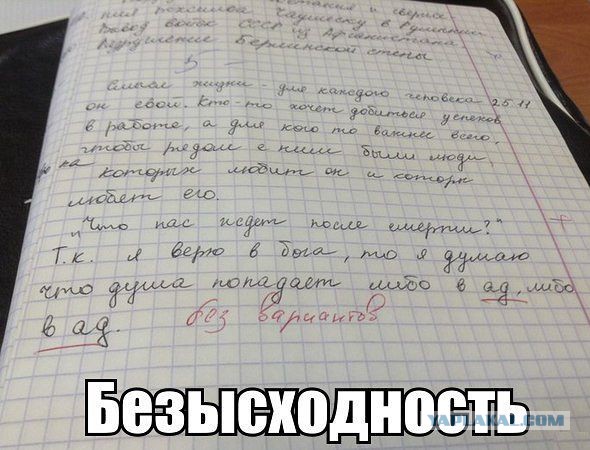 Вывод войск СССР из Афганистана
Разрушение Берлинской стены
25.11
Смысл жизни - для каждого человека
он свой. Кто-то хочет добиться успехов
в работе, а для кого то важнее всего,
чтобы рядом с ним были люди,
которых любит он и которы
любят его.
"Что нас ждет после смерти?"
Т.к. я верю в бога, то я думаю
что душа попадает либо в ад, либо
в ад. без вариантов
Безысходность
YAPLAKAL.COM